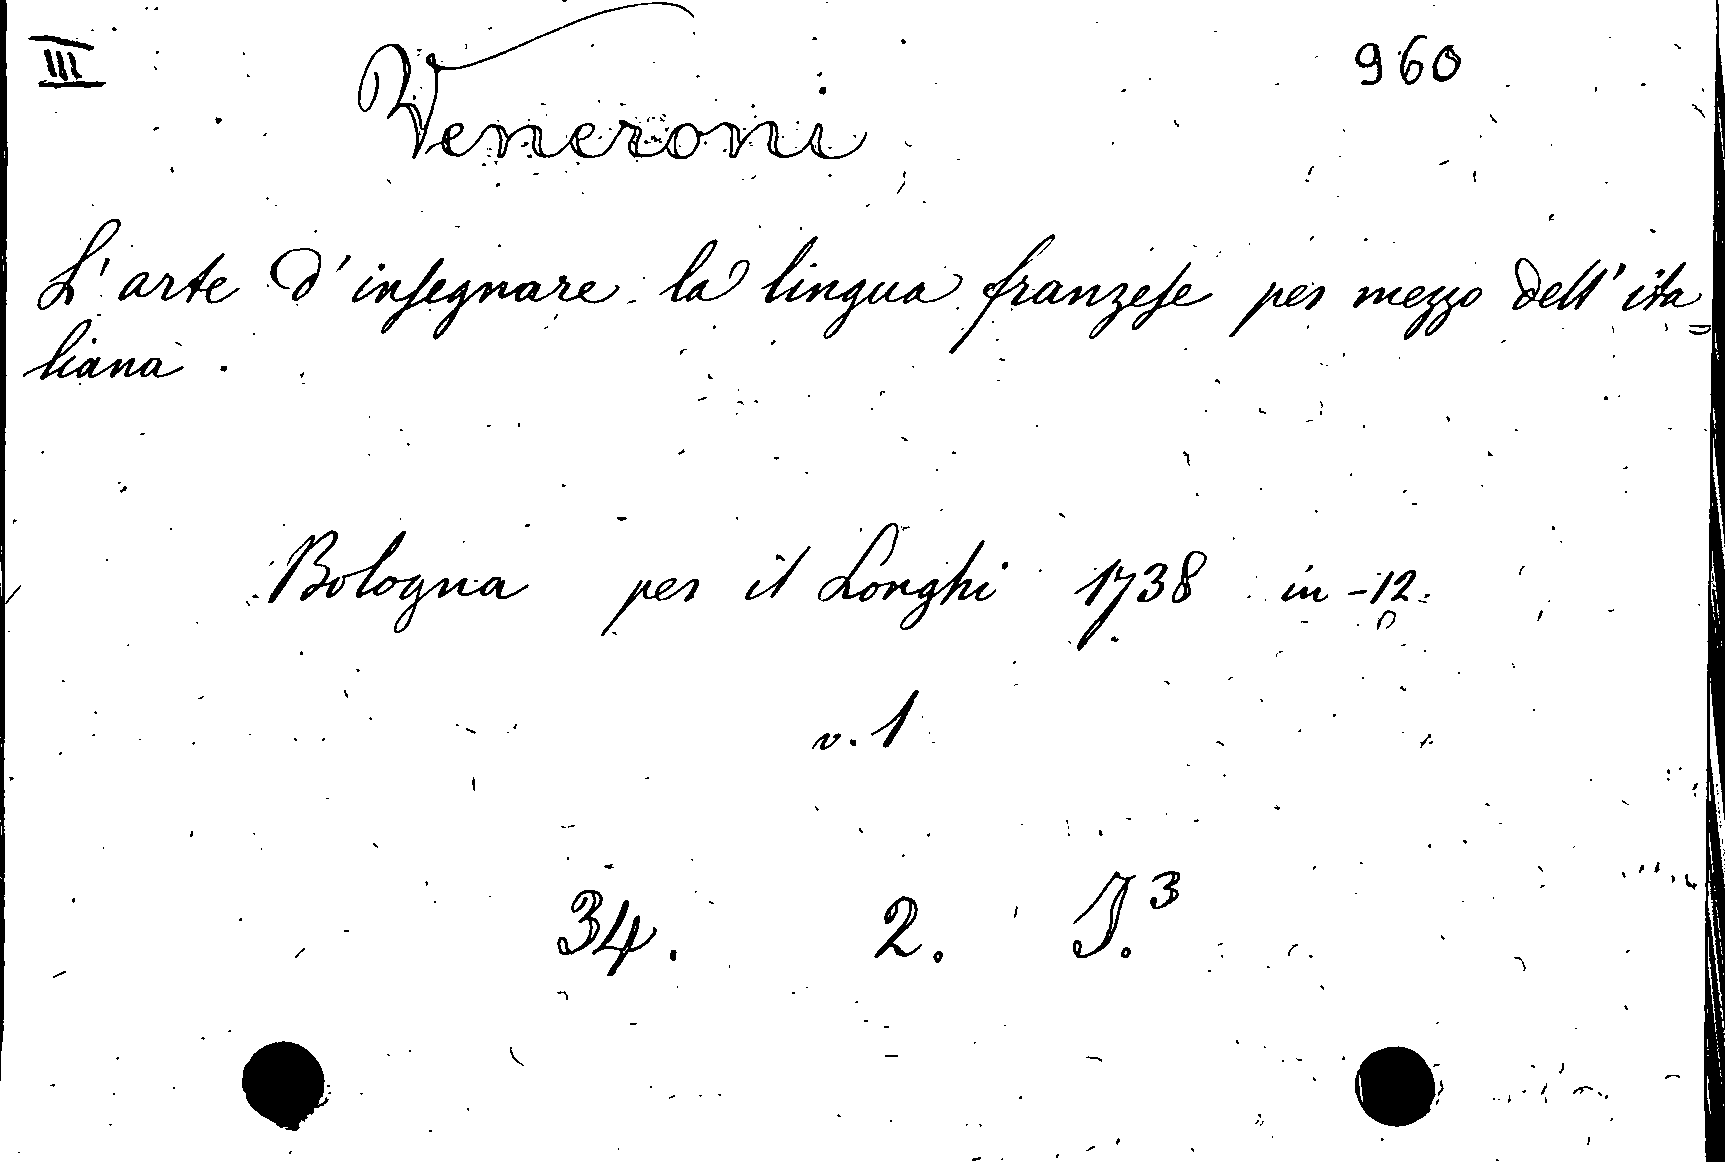 III
960
Veneroni
L'arte d'insegnare la lingua franzese per mezzo dell'ita=
liana.
Bologna per il Longhi 1738 in-12.
v. 1
34. 2. J.³